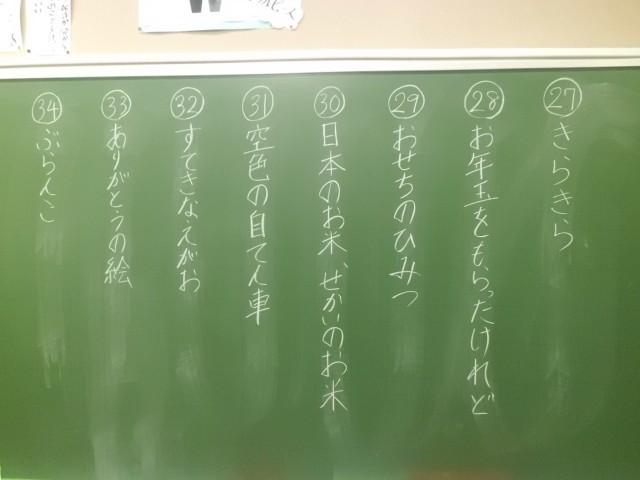 ㉗きらきら
㉘お年玉をもらったけれど
㉙おせちのひみつ
㉚日本のお米、せかいのお米
㉛空色の自てん車
㉜すてきなえがお
㉝ありがとうの絵
㉞ぶらんこ